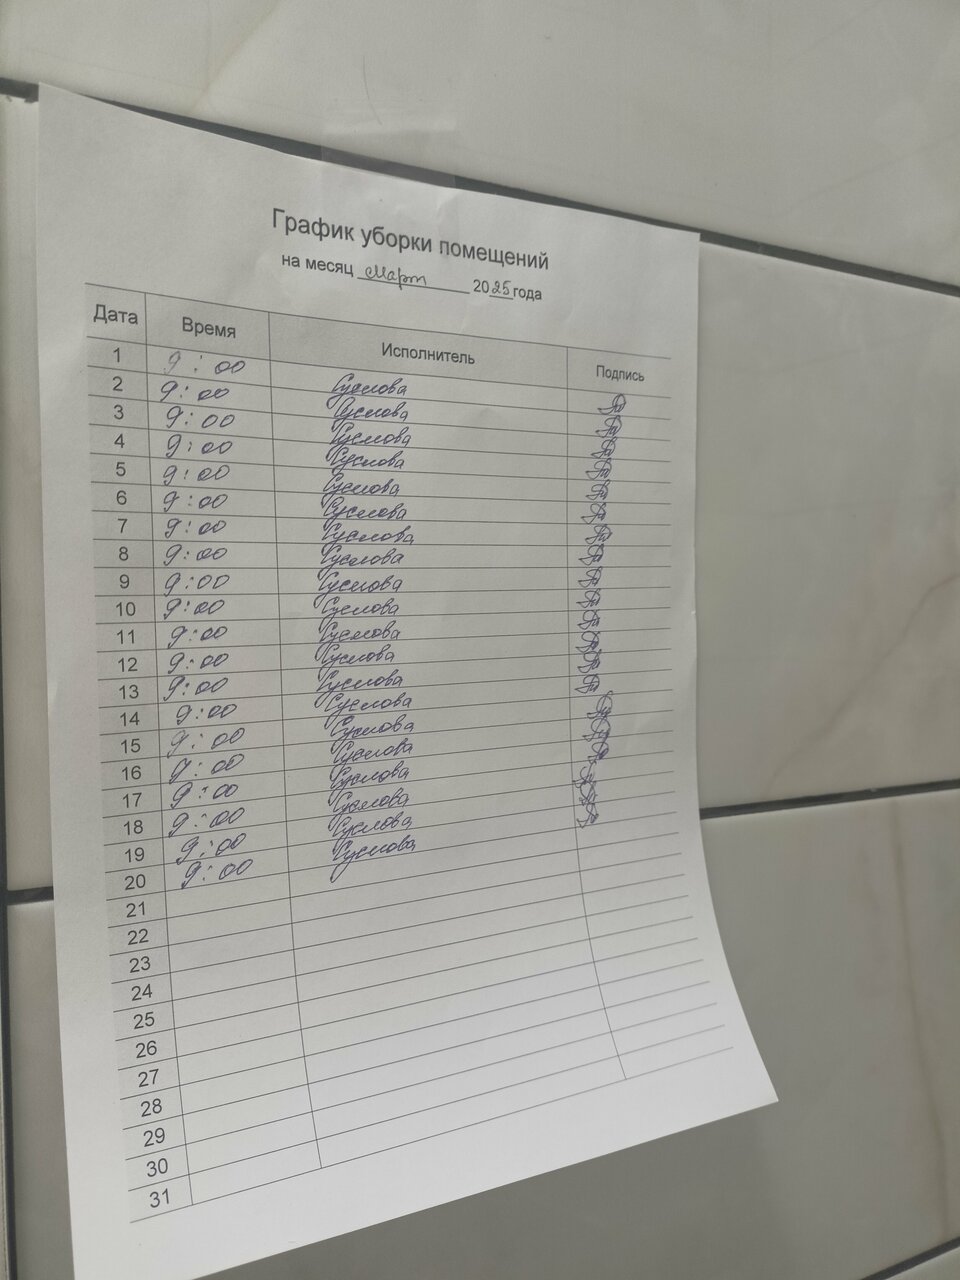 График уборки помещений
на месяц Март 2025 года
Дата Время Исполнитель Подпись
1 9:00 Суслова
2 9:00 Суслова
3 9:00 Суслова
4 9:00 Суслова
5 9:00 Суслова
6 9:00 Суслова
7 9:00 Суслова
8 9:00 Суслова
9 9:00 Суслова
10 9:00 Суслова
11 9:00 Суслова
12 9:00 Суслова
13 9:00 Суслова
14 9:00 Суслова
15 9:00 Суслова
16 9:00 Суслова
17 9:00 Суслова
18 9:00 Суслова
19 9:00 Суслова
20 9:00 Суслова
21
22
23
24
25
26
27
28
29
30
31